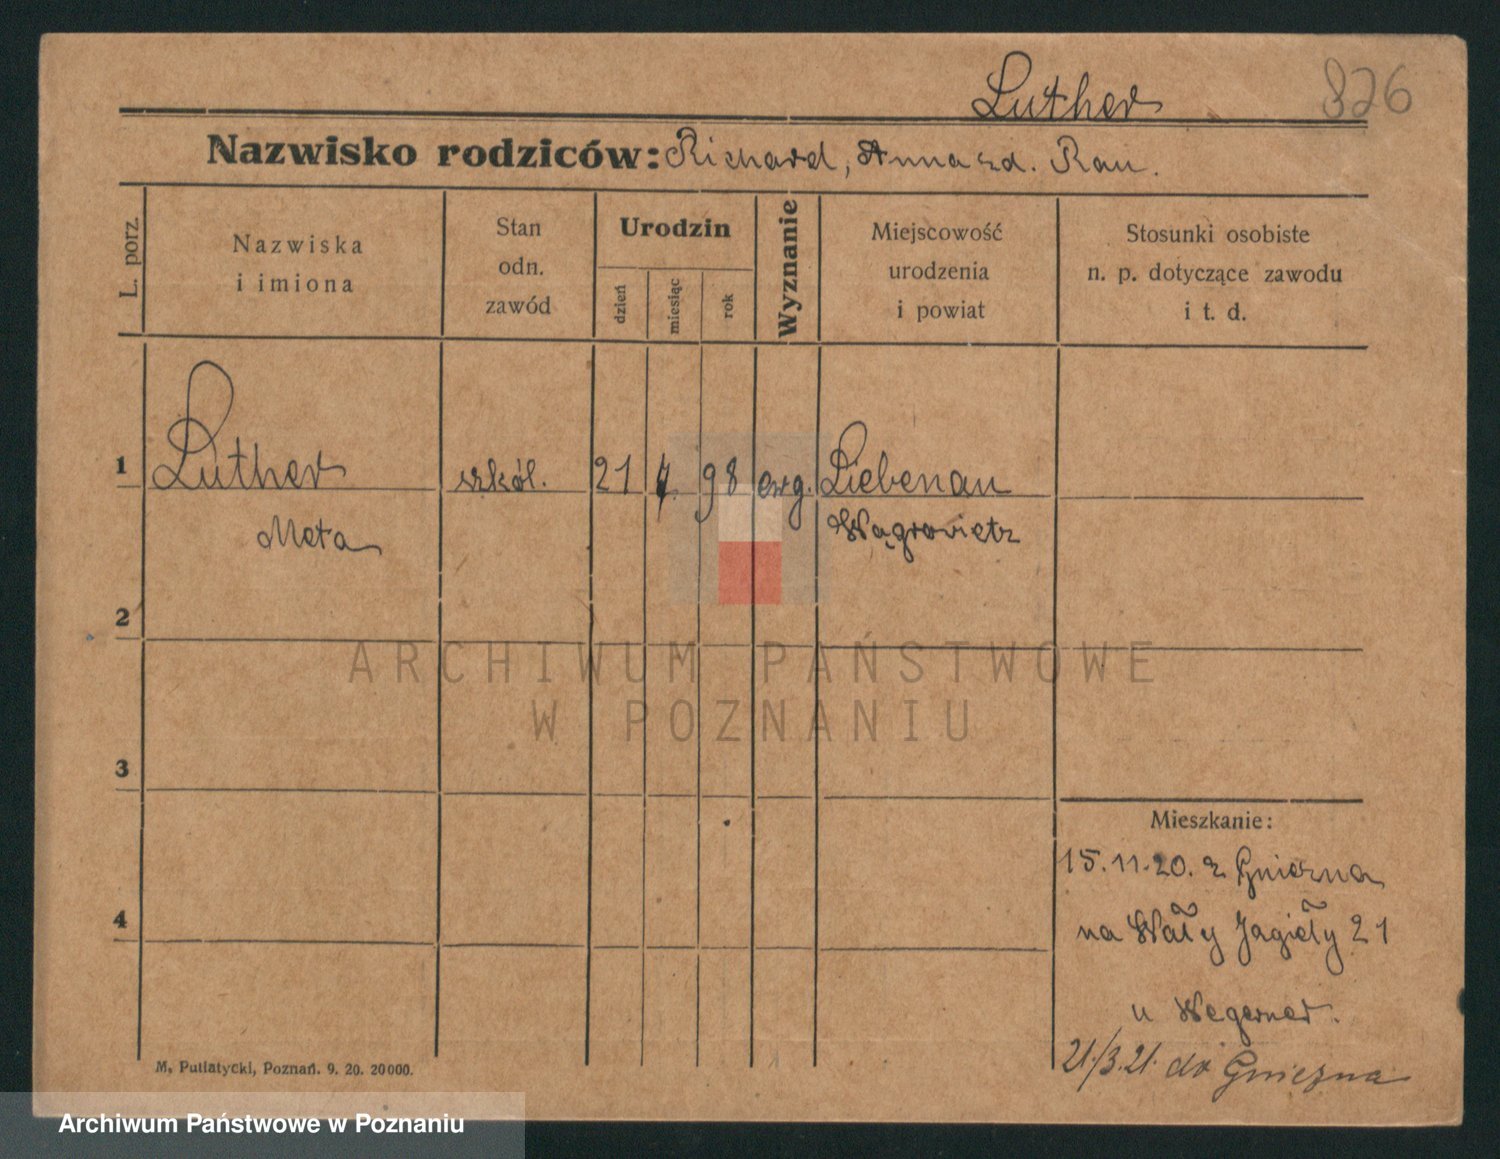 Luther 826
Nazwisko rodziców: Richard, Anna zd. Rau.
L. porz.
Nazwiska
i imiona
Stan
odn.
zawód
Urodzin
dzień
miesiąc
rok
Wyznanie
Miejscowość
urodzenia
i powiat
Stosunki osobiste
n. p. dotyczące zawodu
i t. d.
1 Luther szkól. 21 98 ewg. Liebenau
Meta Wągrowietz
2
3
4
Mieszkanie:
15.11.20. z Gniezna
na Wały Jagieły 21
u Wegerner.
21./3.21. do Gniezna
M. Putiatycki, Poznań. 9. 20. 20000.
ARCHIWUM PAŃSTWOWE
W POZNANIU
Archiwum Państwowe w Poznaniu